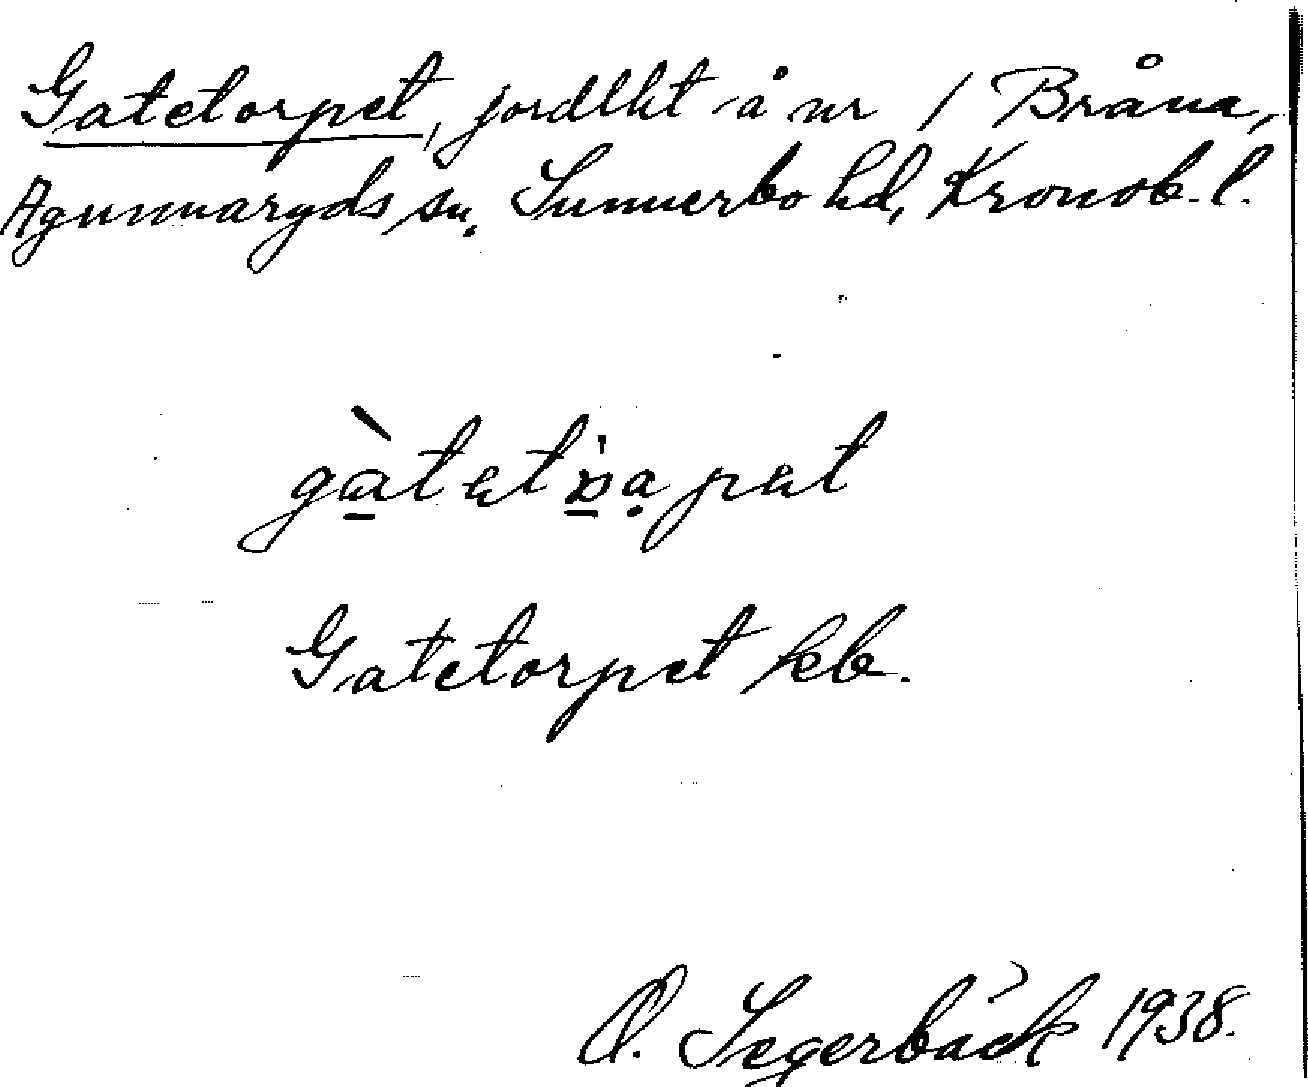 Gatetorpet, jordlht å nr 1 Bråna,
Agunnaryds sn. Sunnerbo hd, Kronob. l.
Gatetorpet kb.
O. Segerbäck 1938.